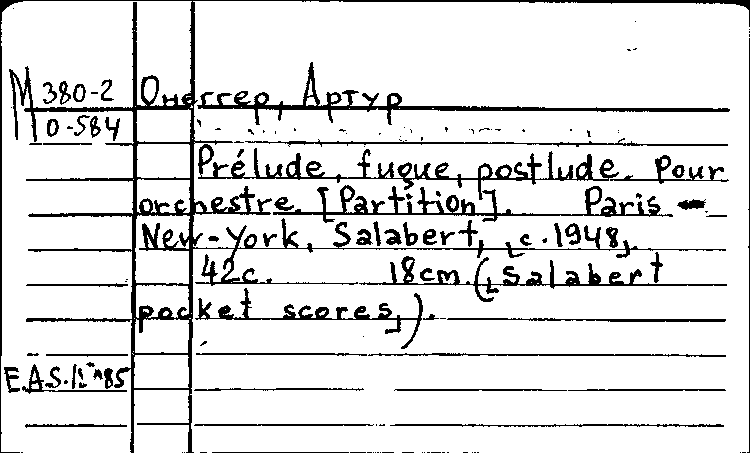 М 380-2
О-584
Онеггер, Артур
Prélude, fugue, postlude. Pour
orchestre. [Partition]. Paris -
New-York, Salabert, [c. 1948].
42c. 18cm. ([Salabert
pocket scores]).
E.A.S.